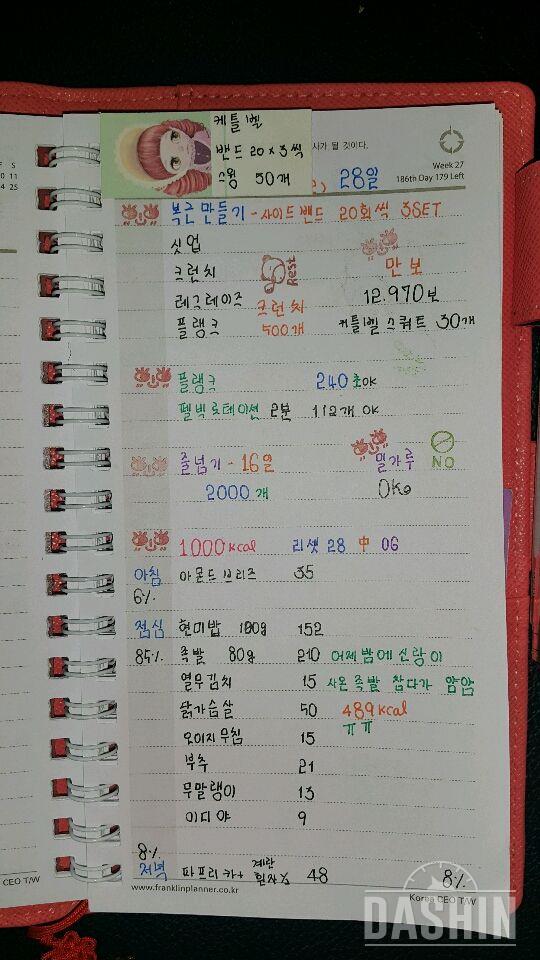 케틀벨
밴드 20 x 3씩
스윙 50개
사가 될 것이다.
Week 27
186th Day 179 Left
28일
복근만들기 - 사이드밴드 20회씩 3SET
싯업
크런치 Rest 만보
레그레이즈 크런치 12.970보
플랭크 500개 케틀벨스쿼트 30개
플랭크 240초OK
펠빅로테이션 2분 112개 OK
줄넘기 - 16일 밀가루 NO
2000개 OK
1000kcal 리셋 28 中 06
아침 아몬드브리즈 35
6%
점심 현미밥 100g 152
85% 족발 80g 210 어제밤에 신랑이
열무김치 15 사온족발 참다가 얌얌
닭가슴살 50 489kcal
오이지무침 15 ㅠㅠ
부추 21
무말랭이 13
이디야 9
8%
저녁 파프리카+ 계란 흰자 48 8%
CEO T/W
www.franklinplanner.co.kr
Korea CEO T/W
DASHIN